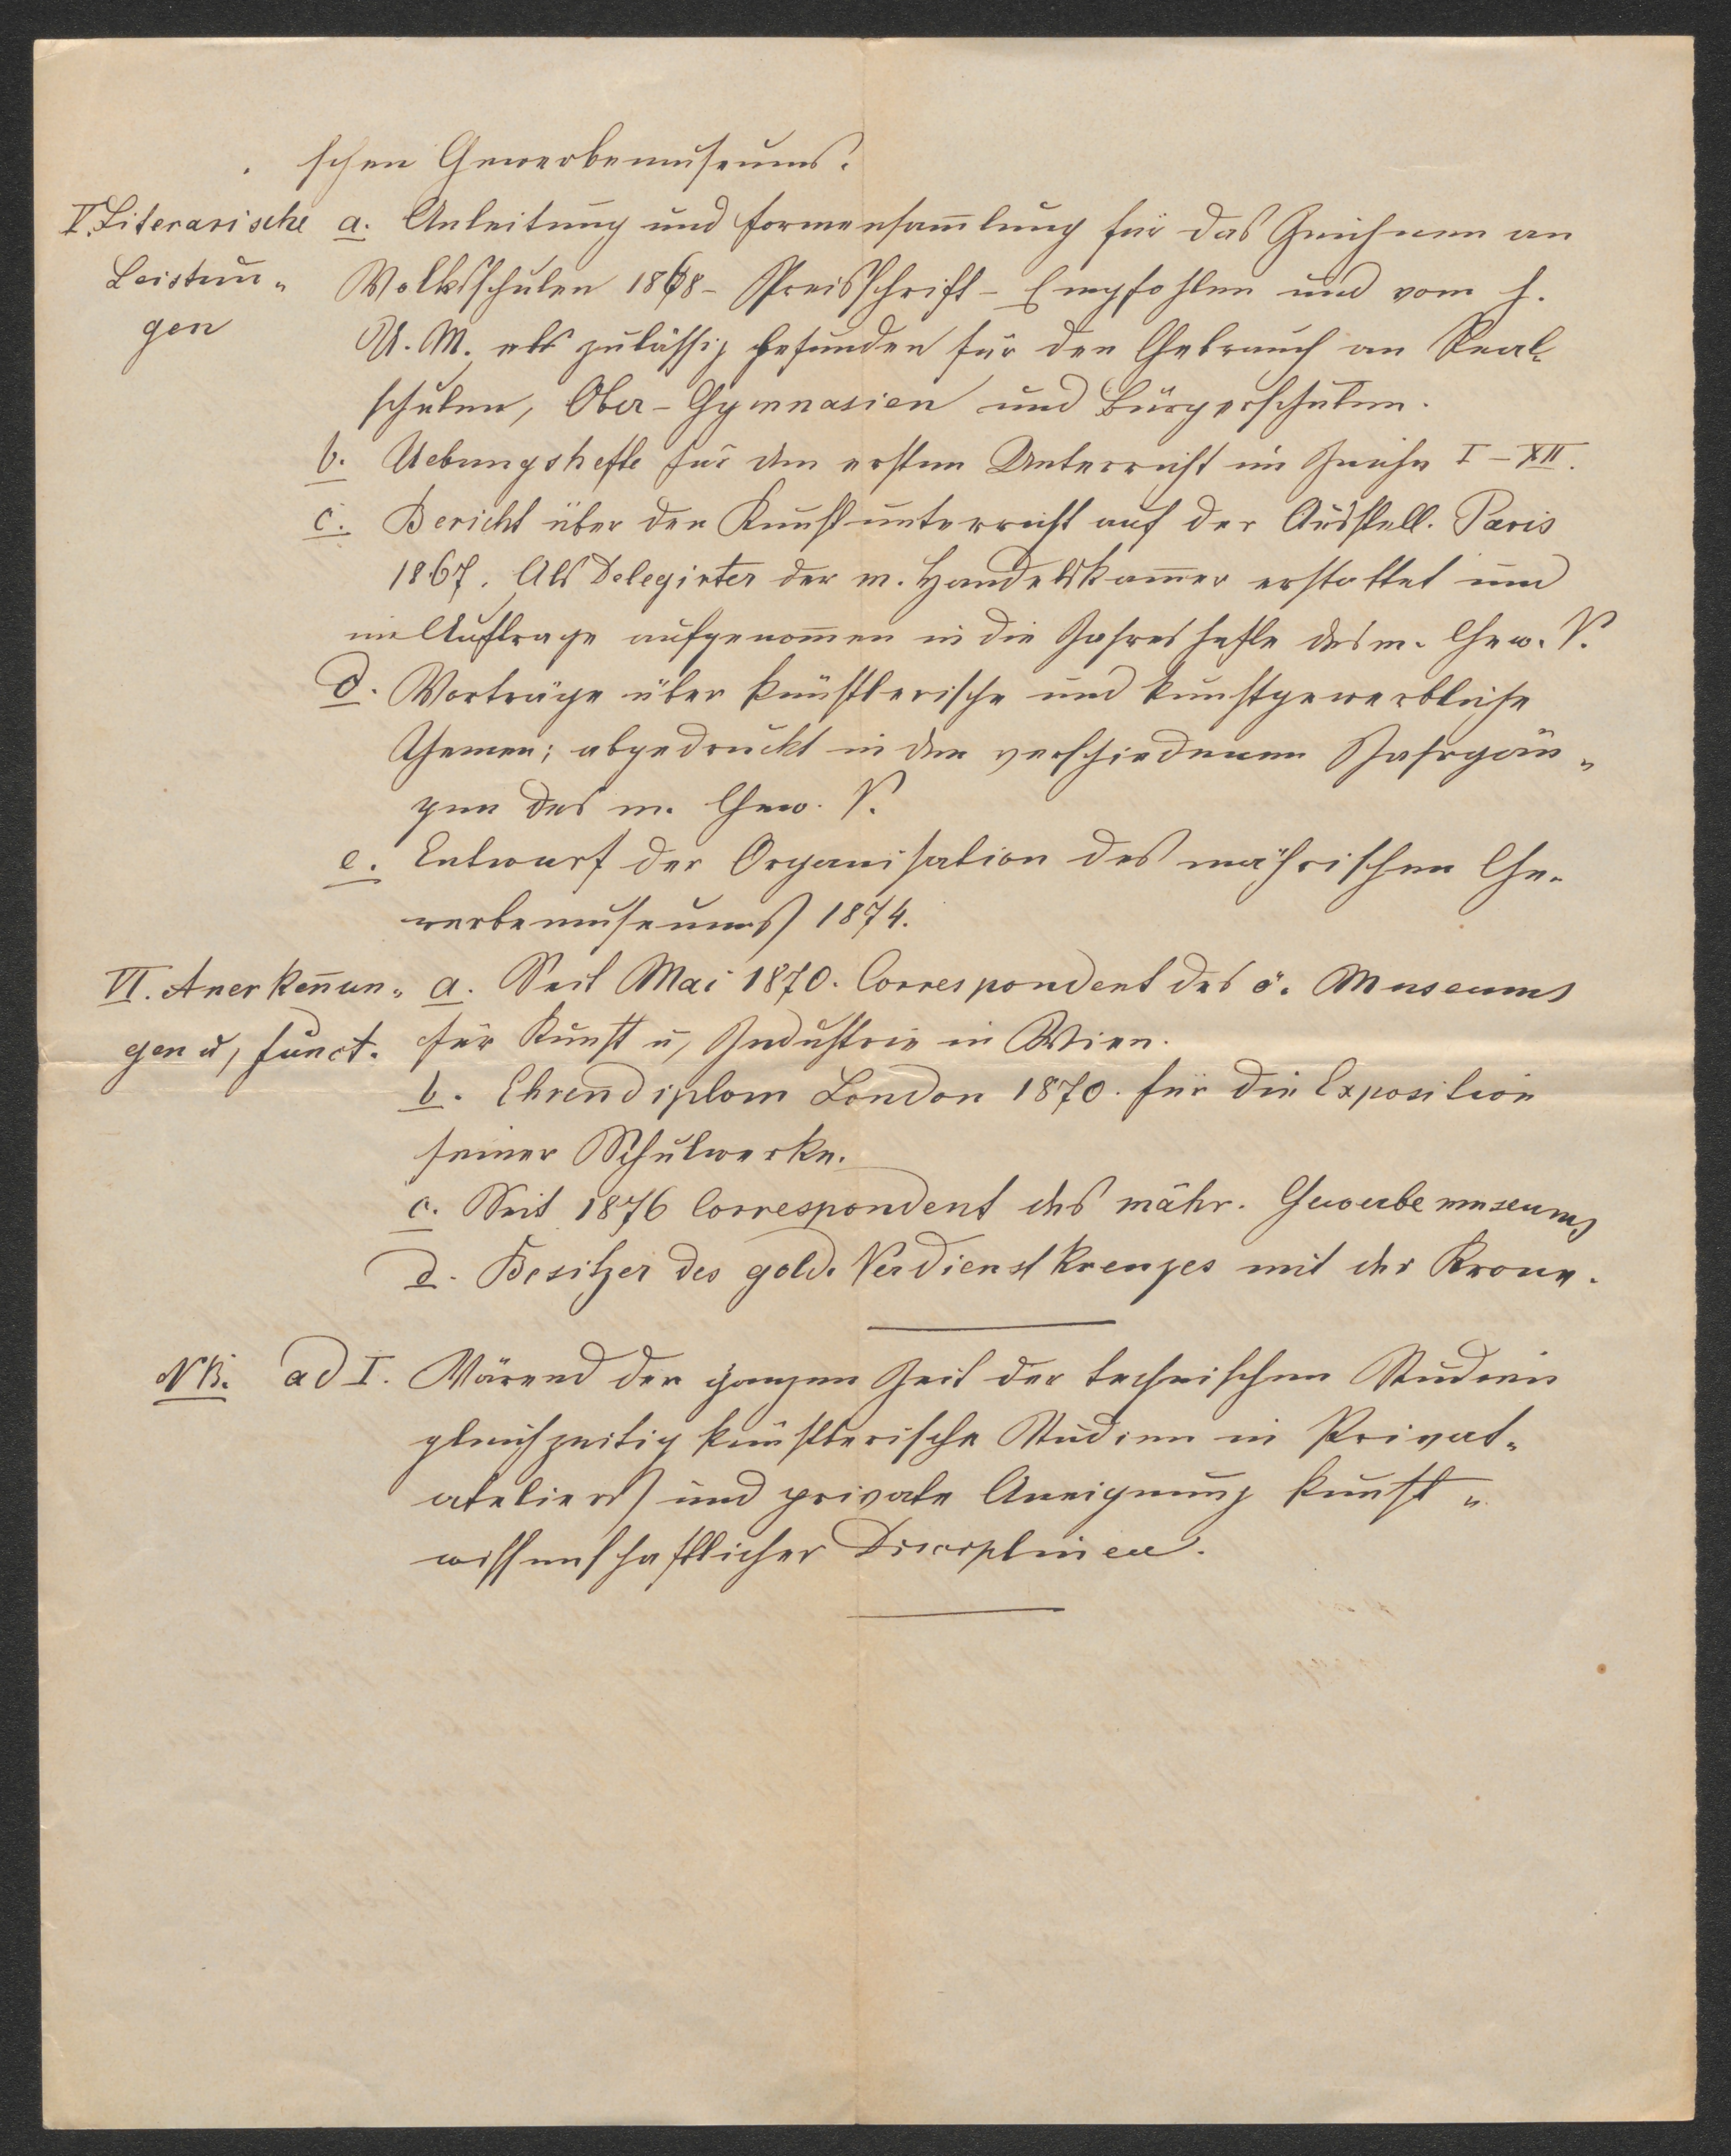 schen Gewerbemuseums.
V. Literarische a. Anleitung und Formensam̄lung für das Zeichnen an
Leistun„ Volksschulen 1868 – Preisschrift – Empfohlen und vom h.
gen U. M. als zulässig befunden für den Gebrauch an Real-
schulen, Ober-Gymnasien und Bürgerschulen.
b. Uebungshefte für den ersten Unterricht im Zeichn I – XII.
c. Bericht über den Kunstunterricht auf der Ausstell. Paris
1867. Als Delegirter der m. Handelskam̄er erstattet und
im Auftrage aufgenom̄en in die Jahreshefte des m. Gew. V.
d. Vorträge über künstlerische und kunstgewerbliche
Themen; abgedruckt in den verschiedenen Jahrgän„
gen des m. Gew. V.
e. Entwurf der Organisation des mährischen Ge„
werbemuseums 1874.
VI. Anerken̄un„ a. Seit Mai 1870. Correspondent des ö. Museums
gen u, Funct. für Kunst u, Industrie in Wien.
b. Ehrendiplom London 1870. für die Exposition
seiner Schulwerke.
c. Seit 1876 Correspondent des mähr. Gewerbemuseums
d. Besitzer des gold. Verdienstkreuzes mit der Krone.
NB. ad I. Wärend der ganzen Zeit der technischen Studien
gleichzeitig künstlerische Studien in Privat„
ateliers und private Aneignung kunst„
wissenschaftlicher Disciplinen.